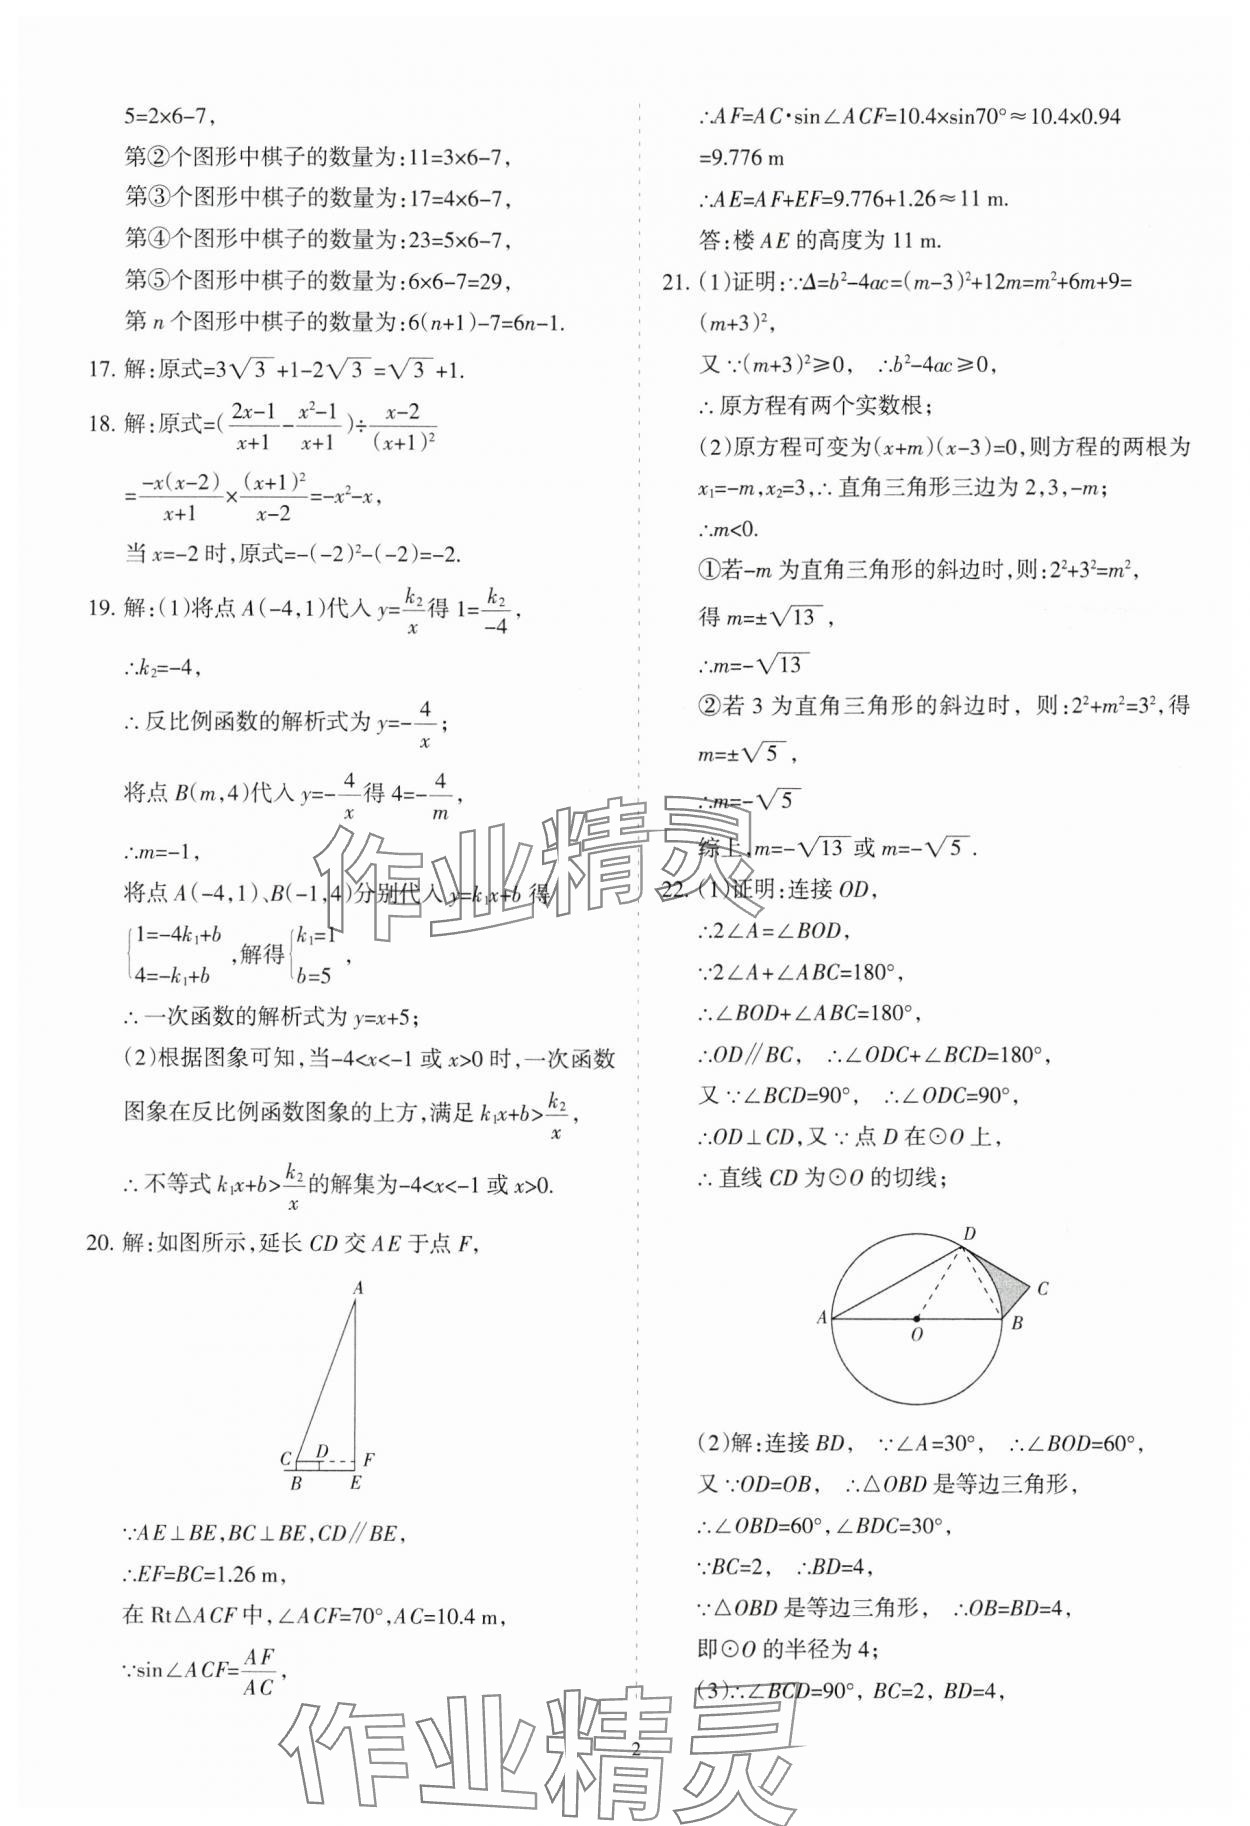 5=2×6-7,
第②个图形中棋子的数量为:11=3×6-7,
第③个图形中棋子的数量为:17=4×6-7,
第④个图形中棋子的数量为:23=5×6-7,
第⑤个图形中棋子的数量为:6×6-7=29,
第 n 个图形中棋子的数量为:6(n+1)-7=6n-1.
17. 解:原式=3√3+1-2√3=√3+1.
18. 解:原式=(\frac{2x-1}{x+1}-\frac{x²-1}{x+1})÷\frac{x-2}{(x+1)²}
=\frac{-x(x-2)}{x+1}×\frac{(x+1)²}{x-2}=-x²-x,
当 x=-2 时,原式=-(-2)²-(-2)=-2.
19. 解:(1)将点 A(-4,1)代入 y=\frac{k₂}{x}得 1=\frac{k₂}{-4},
∴k₂=-4,
∴反比例函数的解析式为 y=-\frac{4}{x};
将点 B(m,4)代入 y=-\frac{4}{x}得 4=-\frac{4}{m},
∴m=-1,
将点 A(-4,1)、B(-1,4)分别代入 y=k₁x+b 得
{1=-4k₁+b 4=-k₁+b ,解得{k₁=1 b=5 ,
∴一次函数的解析式为 y=x+5;
(2)根据图象可知,当-4<x<-1 或 x>0 时,一次函数
图象在反比例函数图象的上方,满足 k₁x+b>\frac{k₂}{x},
∴不等式 k₁x+b>\frac{k₂}{x}的解集为-4<x<-1 或 x>0.
20. 解:如图所示,延长 CD 交 AE 于点 F,
A
C D F
B E
∵AE⊥BE,BC⊥BE,CD∥BE,
∴EF=BC=1.26 m,
在 Rt△ACF 中,∠ACF=70°,AC=10.4 m,
∵sin∠ACF=\frac{AF}{AC},
∴AF=AC·sin∠ACF=10.4×sin70°≈10.4×0.94
=9.776 m
∴AE=AF+EF=9.776+1.26≈11 m.
答:楼 AE 的高度为 11 m.
21. (1)证明:∵Δ=b²-4ac=(m-3)²+12m=m²+6m+9=
(m+3)²,
又∵(m+3)²≥0, ∴b²-4ac≥0,
∴原方程有两个实数根;
(2)原方程可变为(x+m)(x-3)=0,则方程的两根为
x₁=-m,x₂=3,∴直角三角形三边为 2,3,-m;
∴m<0.
①若-m 为直角三角形的斜边时,则:2²+3²=m²,
得 m=±√13,
∴m=-√13
②若 3 为直角三角形的斜边时, 则:2²+m²=3²,得
m=±√5,
∴m=-√5
综上,m=-√13或 m=-√5.
22. (1)证明:连接 OD,
∴2∠A=∠BOD,
∵2∠A+∠ABC=180°,
∴∠BOD+∠ABC=180°,
∴OD∥BC, ∴∠ODC+∠BCD=180°,
又∵∠BCD=90°, ∴∠ODC=90°,
∴OD⊥CD,又∵点 D 在⊙O 上,
∴直线 CD 为⊙O 的切线;
D
C
A O B
(2)解:连接 BD, ∵∠A=30°, ∴∠BOD=60°,
又∵OD=OB, ∴△OBD 是等边三角形,
∴∠OBD=60°,∠BDC=30°,
∵BC=2, ∴BD=4,
∵△OBD 是等边三角形, ∴OB=BD=4,
即⊙O 的半径为 4;
(3)∴∠BCD=90°, BC=2, BD=4,
2
作业精灵
作业精灵